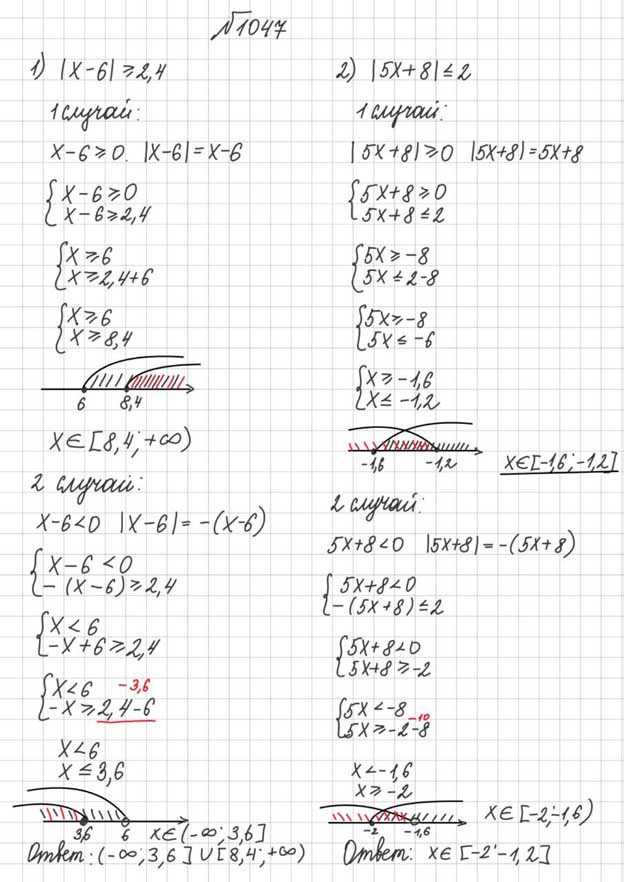 №1047
1) |x-6| ≥ 2,4
1 случай:
x-6 ≥ 0. |x-6| = x-6
{ x-6 ≥ 0
x-6 ≥ 2,4
{ x ≥ 6
x ≥ 2,4+6
{ x ≥ 6
x ≥ 8,4
6 8,4
x∈[8,4; +∞)
2 случай:
x-6<0 |x-6| = -(x-6)
{ x-6 <0
-(x-6) ≥ 2,4
{ x < 6
-x+6 ≥ 2,4
{ x<6 -3,6
-x ≥ 2,4-6
x<6
x ≤ 3,6
3,6 6 x∈(-∞; 3,6]
Ответ: (-∞; 3,6] ∪ [8,4; +∞)
2) |5x+8| ≤ 2
1 случай:
|5x+8| ≥ 0 |5x+8| = 5x+8
{ 5x+8 ≥ 0
5x+8 ≤ 2
{ 5x ≥ -8
5x ≤ 2-8
{ 5x ≥ -8
5x ≤ -6
{ x ≥ -1,6
x ≤ -1,2
-1,6 -1,2 x∈[-1,6; -1,2]
2 случай:
5x+8<0 |5x+8| = -(5x+8)
{ 5x+8<0
-(5x+8) ≤ 2
{ 5x+8<0
5x+8 ≥ -2
{ 5x < -8 -10
5x ≥ -2-8
x < -1,6
x ≥ -2
-2 -1,6 x∈[-2; -1,6)
Ответ: x∈[-2; -1,2]